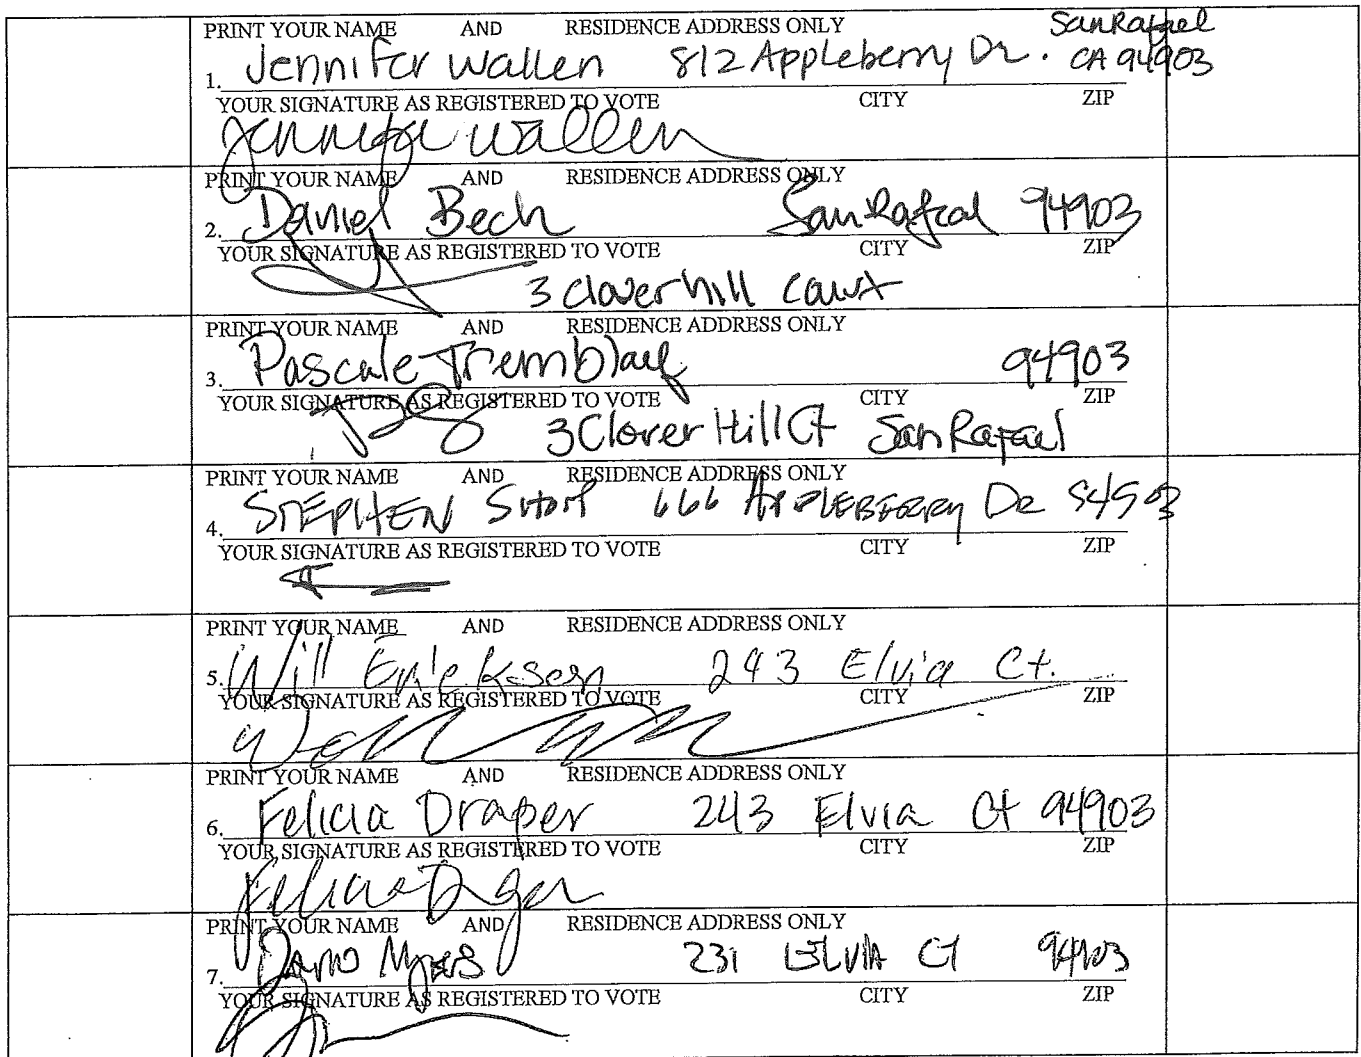 PRINT YOUR NAME AND RESIDENCE ADDRESS ONLY San Rafael
1. Jennifer Wallen 812 Appleberry Dr. CA 94903
YOUR SIGNATURE AS REGISTERED TO VOTE CITY ZIP
Jennifer Wallen
PRINT YOUR NAME AND RESIDENCE ADDRESS ONLY
2. Daniel Bech San Rafael 94903
YOUR SIGNATURE AS REGISTERED TO VOTE CITY ZIP
3 Cloverhill Court
PRINT YOUR NAME AND RESIDENCE ADDRESS ONLY
3. Pascale Tremblay 94903
YOUR SIGNATURE AS REGISTERED TO VOTE CITY ZIP
3 Clover Hill Ct San Rafael
PRINT YOUR NAME AND RESIDENCE ADDRESS ONLY
4. STEPHEN 666 APPLEBERRY DR 94903
YOUR SIGNATURE AS REGISTERED TO VOTE CITY ZIP
PRINT YOUR NAME AND RESIDENCE ADDRESS ONLY
5. Will Ericksen 243 Elvia Ct.
YOUR SIGNATURE AS REGISTERED TO VOTE CITY ZIP
PRINT YOUR NAME AND RESIDENCE ADDRESS ONLY
6. Felicia Draper 243 Elvia Ct 94903
YOUR SIGNATURE AS REGISTERED TO VOTE CITY ZIP
Felicia Draper
PRINT YOUR NAME AND RESIDENCE ADDRESS ONLY
7. Myers 231 ELVIA CT 94903
YOUR SIGNATURE AS REGISTERED TO VOTE CITY ZIP